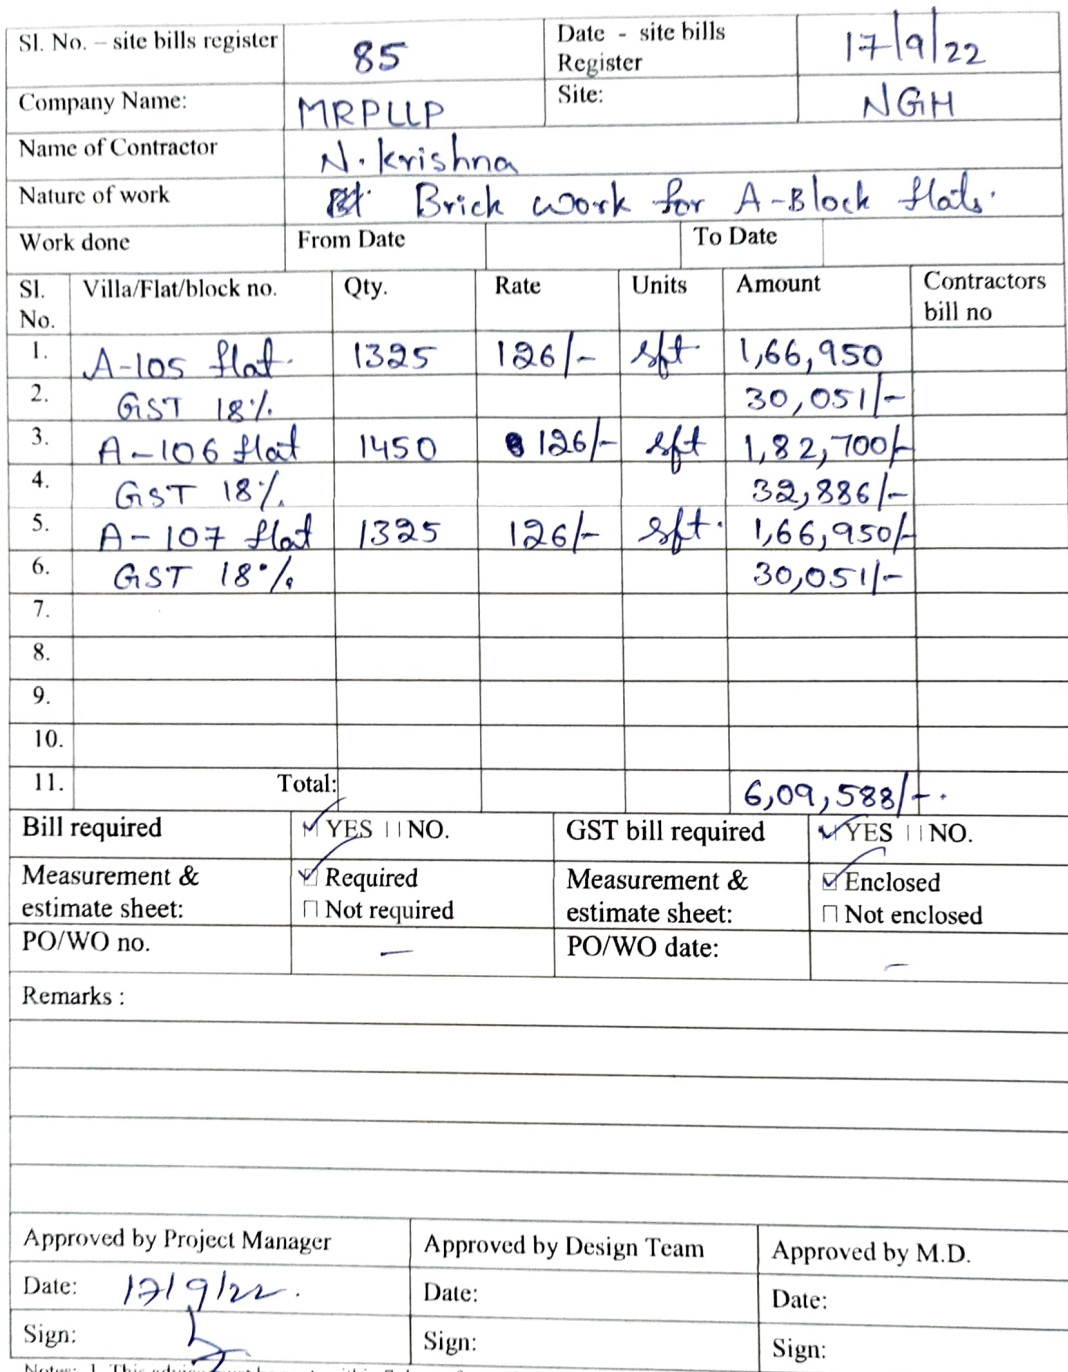 Sl. No. – site bills register 85 Date - site bills Register 17/9/22
Company Name: MRPLLP Site: NGH
Name of Contractor N. Krishna
Nature of work Brick work for A-Block flats.
Work done From Date To Date
Sl. No. Villa/Flat/block no. Qty. Rate Units Amount Contractors bill no
1. A-105 flat. 1325 126/- sft 1,66,950
2. GST 18% 30,051/-
3. A-106 flat 1450 126/- sft 1,82,700/-
4. GST 18%. 32,886/-
5. A-107 flat 1325 126/- sft. 1,66,950/-
6. GST 18% 30,051/-
7.
8.
9.
10.
11. Total: 6,09,588/-.
Bill required ☑ YES □ NO. GST bill required ☑ YES □ NO.
Measurement & estimate sheet: ☑ Required □ Not required Measurement & estimate sheet: ☑ Enclosed □ Not enclosed
PO/WO no. – PO/WO date: –
Remarks :
Approved by Project Manager Approved by Design Team Approved by M.D.
Date: 17/9/22. Date: Date:
Sign: Sign: Sign: